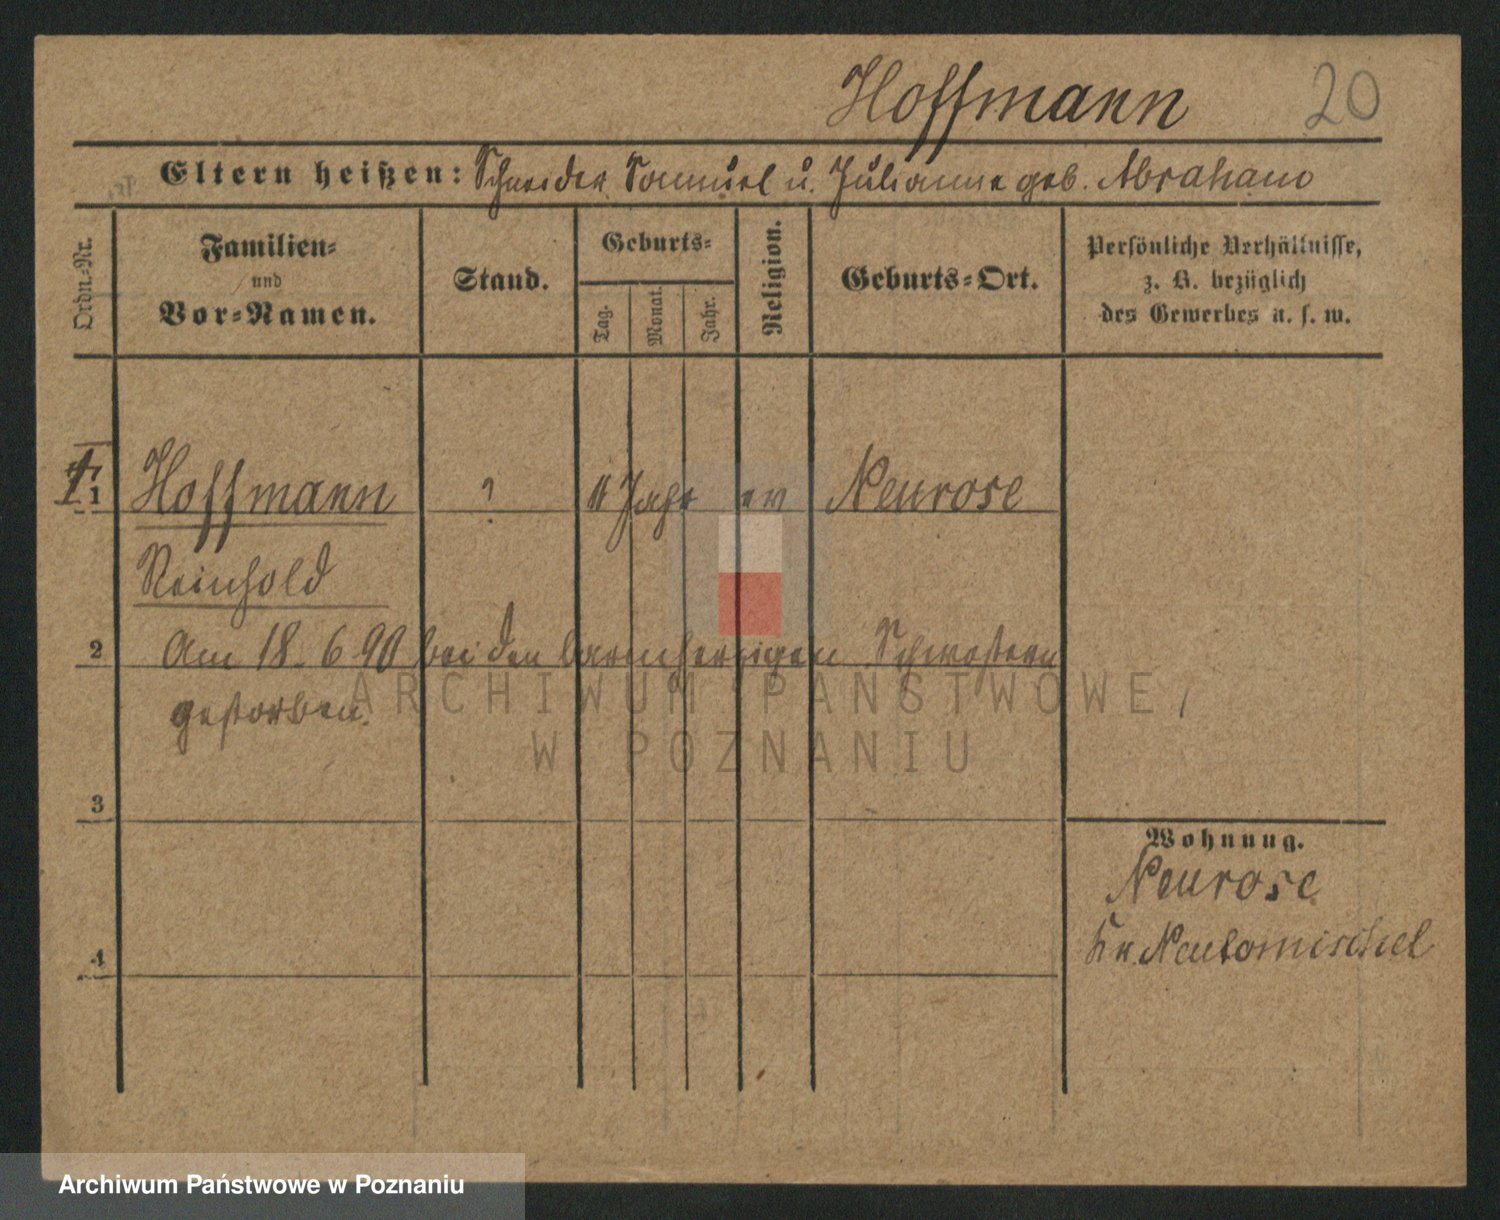 Hoffmann 20
Eltern heißen: Schneider Samuel u. Julianne geb. Abraham
Ordn.-Nr.
Familien-
und
Vor-Namen.
Stand.
Geburts-
Tag.
Monat.
Jahr.
Religion.
Geburts-Ort.
Persönliche Verhältnisse,
z. B. bezüglich
des Gewerbes u. s. w.
1 Hoffmann ? 11 Jahr ev Neurose
Reinhold
2 Am 18. 6 90 bei den barmherzigen Schwestern
gestorben.
3
4
Wohnung.
Neurose
Kr. Neutomischel
ARCHIWUM PAŃSTWOWE
W POZNANIU
Archiwum Państwowe w Poznaniu